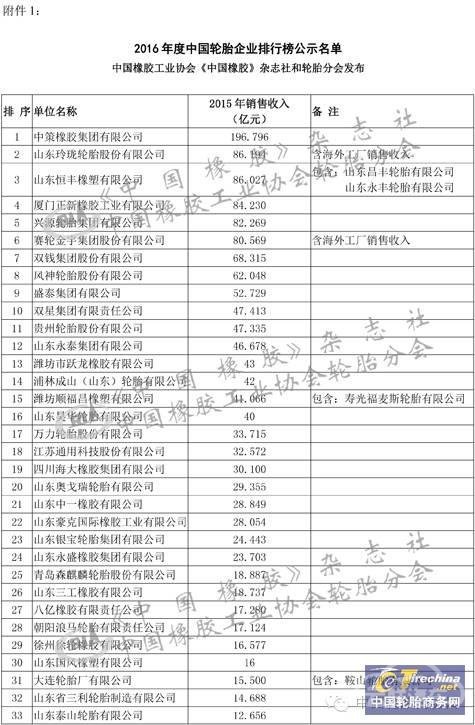 附件 1：
2016 年度中国轮胎企业排行榜公示名单
中国橡胶工业协会《中国橡胶》杂志社和轮胎分会发布
排 序 单位名称 2015 年销售收入（亿元） 备 注
1 中策橡胶集团有限公司 196.796
2 山东玲珑轮胎股份有限公司 86.194 含海外工厂销售收入
3 山东恒丰橡塑有限公司 86.027 包含：山东昌丰轮胎有限公司
山东永丰轮胎有限公司
4 厦门正新橡胶工业有限公司 84.230
5 兴源轮胎集团有限公司 82.269
6 赛轮金宇集团股份有限公司 80.569 含海外工厂销售收入
7 双钱集团股份有限公司 68.315
8 风神轮胎股份有限公司 62.048
9 盛泰集团有限公司 52.729
10 双星集团有限责任公司 47.413
11 贵州轮胎股份有限公司 47.335
12 山东永泰集团有限公司 46.678
13 潍坊市跃龙橡胶有限公司 43
14 浦林成山（山东）轮胎有限公司 42
15 潍坊顺福昌橡塑有限公司 41.066 包含：寿光福麦斯轮胎有限公司
16 山东昊华轮胎有限公司 40
17 万力轮胎股份有限公司 33.715
18 江苏通用科技股份有限公司 32.572
19 四川海大橡胶集团有限公司 30.100
20 山东奥戈瑞轮胎有限公司 29.355
21 山东中一橡胶有限公司 28.849
22 山东豪克国际橡胶工业有限公司 28.054
23 山东银宝轮胎集团有限公司 24.443
24 山东永盛橡胶集团有限公司 23.703
25 青岛森麒麟轮胎股份有限公司 18.887
26 山东三工橡胶有限公司 18.737
27 八亿橡胶有限责任公司 17.280
28 朝阳浪马轮胎有限责任公司 17.124
29 徐州徐轮橡胶有限公司 16.577
30 山东国风橡塑有限公司 16
31 大连轮胎厂有限公司 15.500 包含：鞍山轮胎
32 山东省三利轮胎制造有限公司 14.688
33 山东泰山轮胎有限公司 12.656
《中国橡胶》杂志社
中国橡胶工业协会轮胎分会
《中国橡胶》杂志社
中国橡胶工业协会轮胎分会
《中国橡胶》杂志社
中国橡胶工业协会轮胎分会
Tirechina.net
中国轮胎商务网